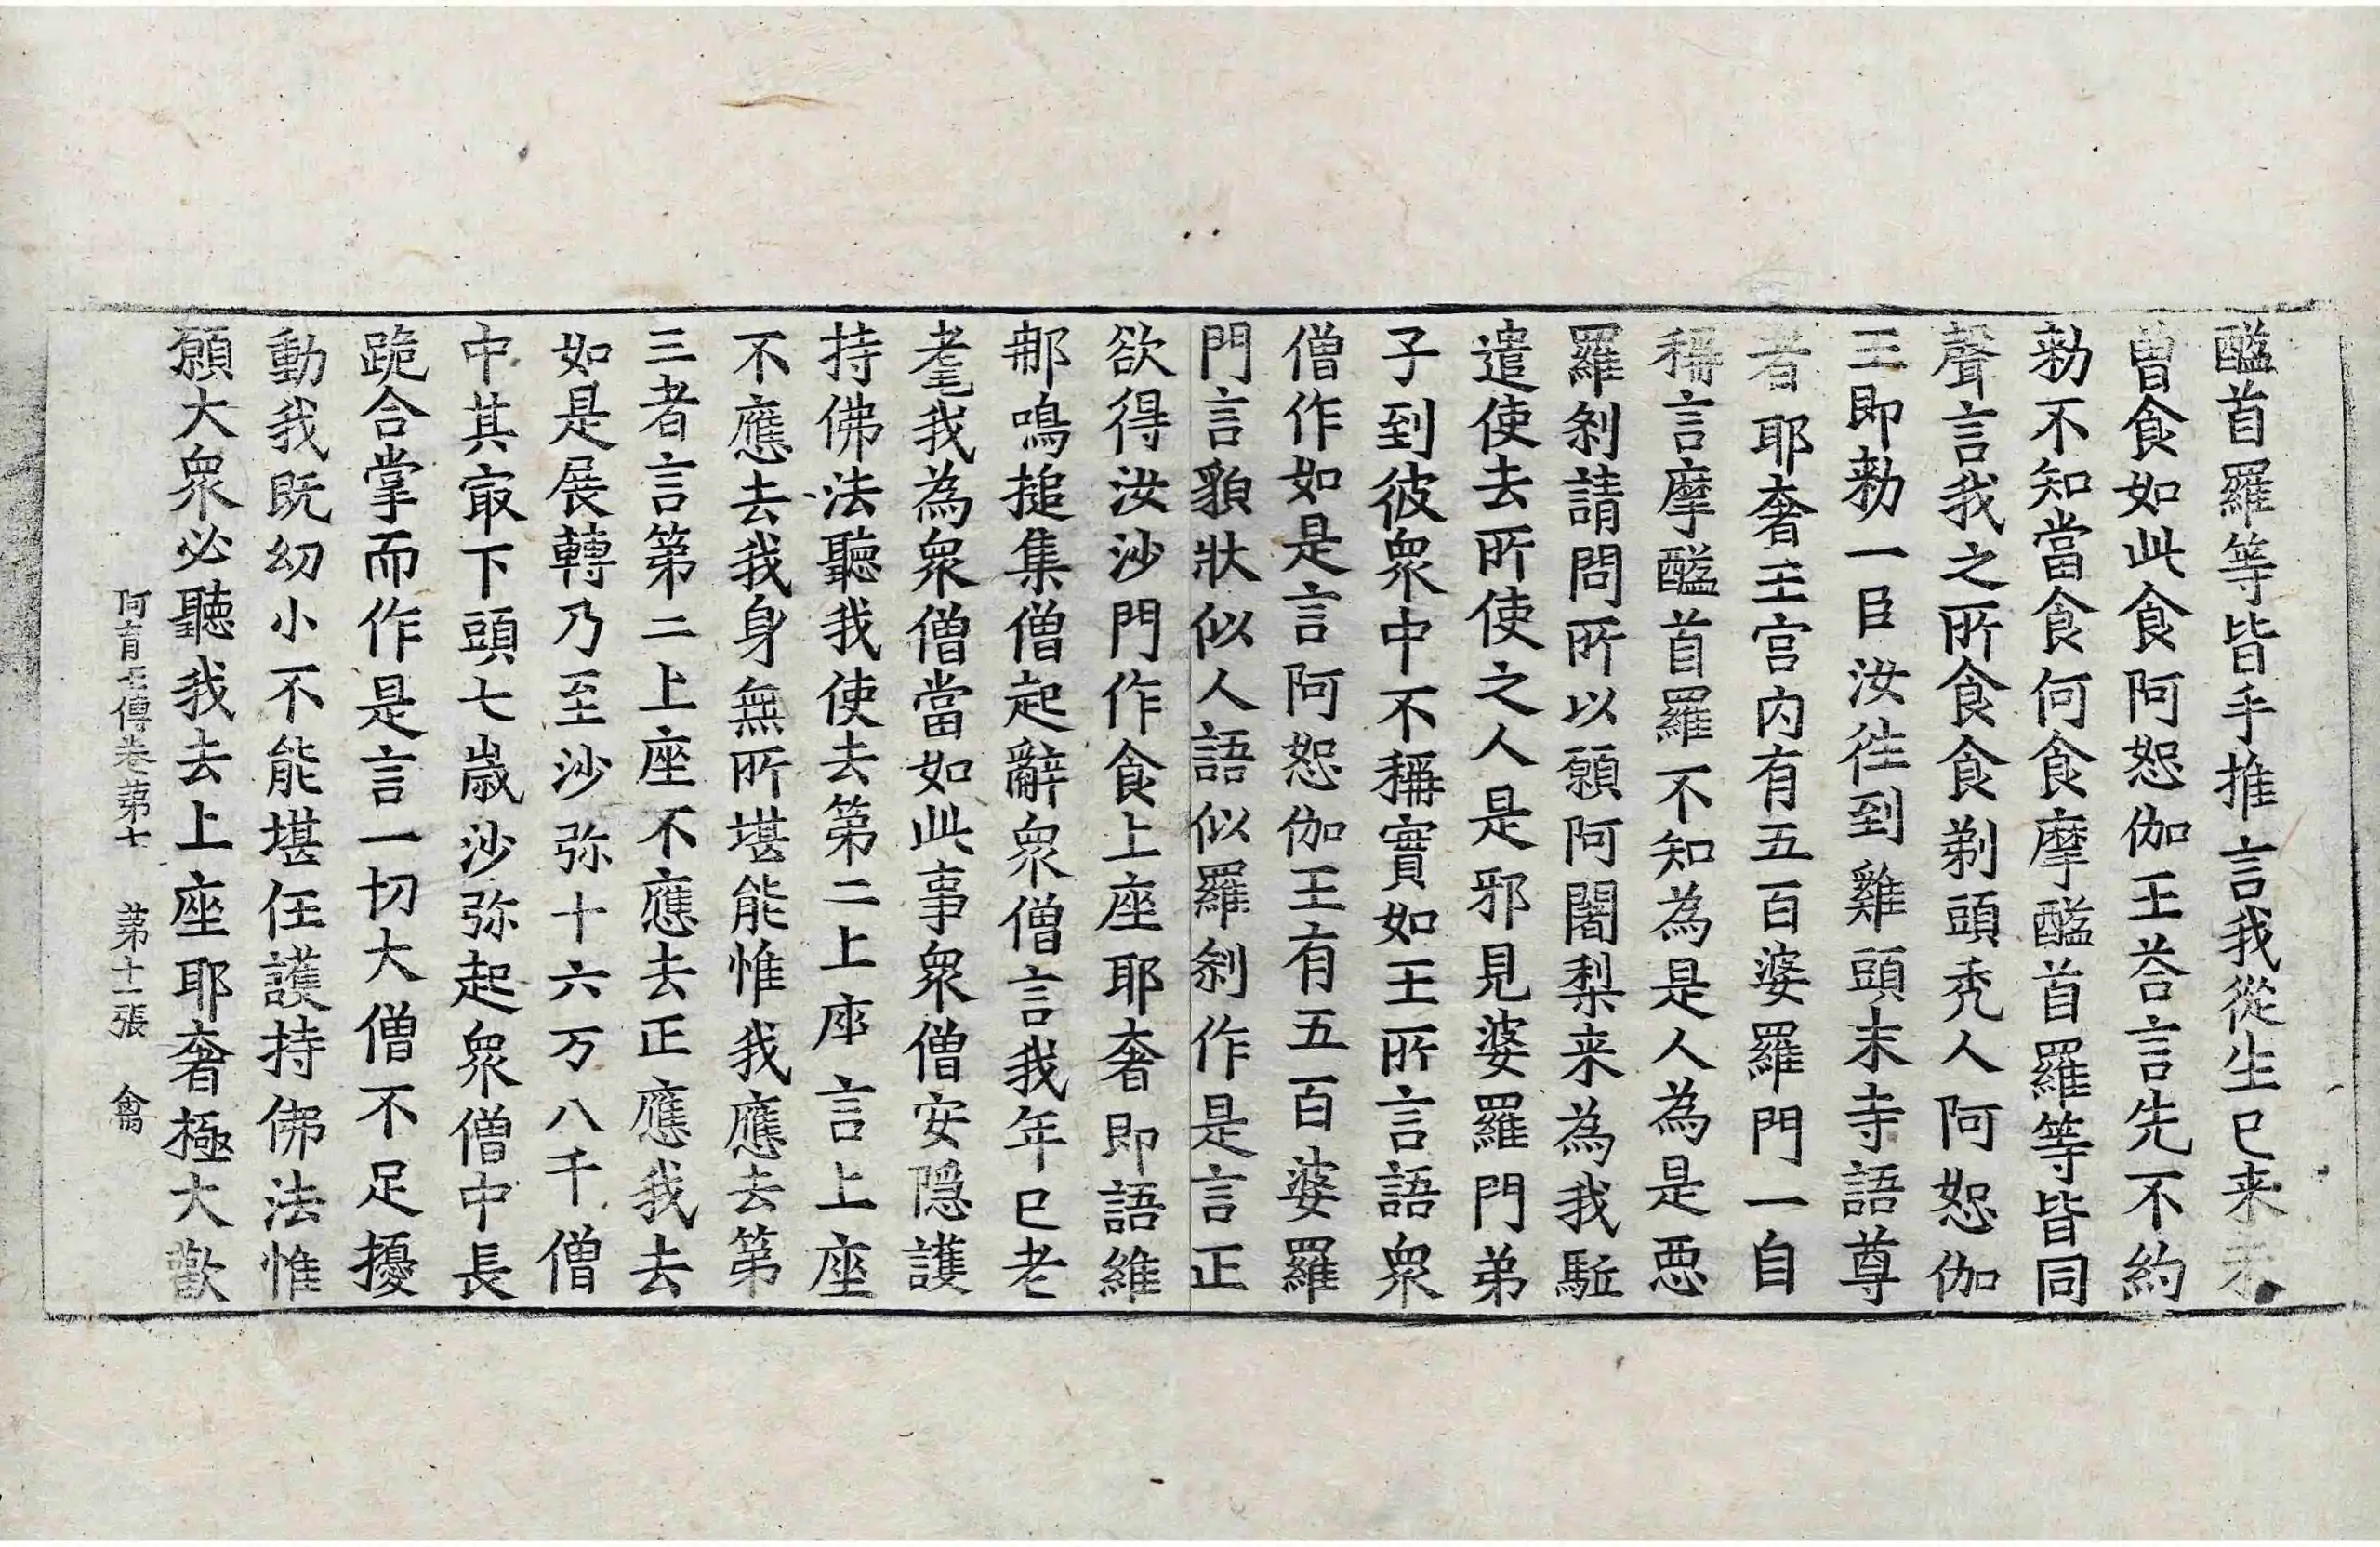 醯首羅等皆手推言我從生已来未
曽食如此食阿恕伽王荅言先不約
勑不知當食何食摩醯首羅等皆同
聲言我之所食食剃頭禿人阿恕伽
王即勑一臣汝徃到雞頭末寺語尊
者耶奢王宫内有五百婆羅門一自
稱言摩醯首羅不知為是人為是悪
羅刹請問所以願阿闍梨来為我駈
遣使去所使之人是邪見婆羅門弟
子到彼衆中不稱實如王所言語衆
僧作如是言阿恕伽王有五百婆羅
門言貌狀似人語似羅刹作是言正
欲得汝沙門作食上座耶奢即語維
那鳴搥集僧起辭衆僧言我年已老
耄我為衆僧當如此事衆僧安隠護
持佛法聽我使去第二上座言上座
不應去我身無所堪能惟我應去第
三者言第二上座不應去正應我去
如是展轉乃至沙弥十六万八千僧
中其㝡下頭七歳沙弥起衆僧中長
跪合掌而作是言一切大僧不足擾
動我既幼小不能堪任護持佛法惟
願大衆必聽我去上座耶奢極大歡
阿育王傳卷第七 第十一張 禽